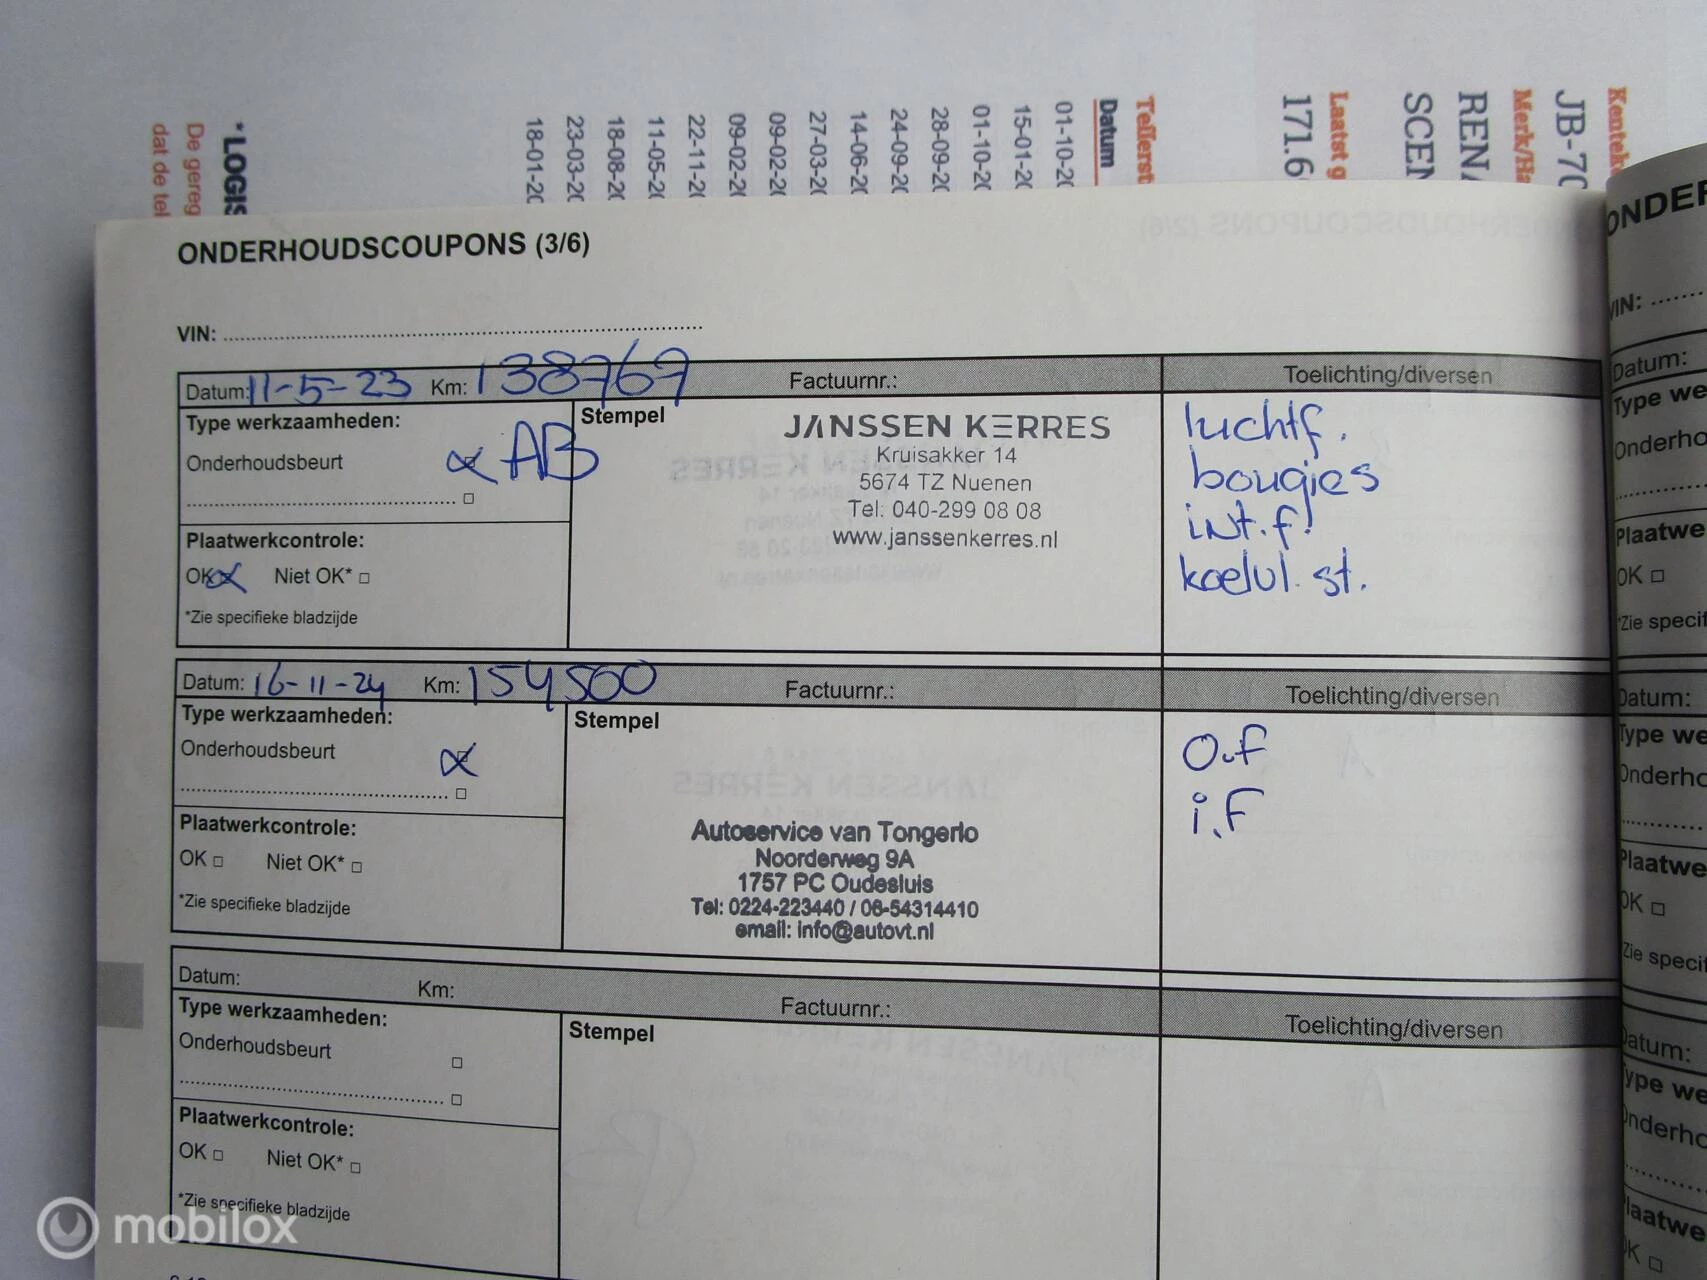 Kentek
JB-70
Merk/Ha
RENA
SCEN
Laatst g
171.6
Tellerst
Datum
01-10-20
15-01-20
01-10-20
28-09-20
24-09-20
14-06-20
27-03-20
09-02-20
09-02-20
22-11-20
11-05-20
18-08-20
23-03-20
18-01-20
*LOGIS
De gereg
dat de tel
ONDERHOUDSCOUPONS (3/6)
VIN:
Datum: 11-5-23 Km: 138769 Factuurnr.: Toelichting/diversen
Type werkzaamheden: Stempel
Onderhoudsbeurt AB
Plaatwerkcontrole:
OK Niet OK*
*Zie specifieke bladzijde
JANSSEN KERRES
Kruisakker 14
5674 TZ Nuenen
Tel: 040-299 08 08
www.janssenkerres.nl
luchtf.
bougies
int.f!
koelvl. st.
Datum: 16-11-24 Km: 154500 Factuurnr.: Toelichting/diversen
Type werkzaamheden: Stempel
Onderhoudsbeurt
Plaatwerkcontrole:
OK Niet OK*
*Zie specifieke bladzijde
Autoservice van Tongerlo
Noorderweg 9A
1757 PC Oudesluis
Tel: 0224-223440 / 06-54314410
email: info@autovt.nl
O.f
i.F
Datum: Km: Factuurnr.: Toelichting/diversen
Type werkzaamheden: Stempel
Onderhoudsbeurt
Plaatwerkcontrole:
OK Niet OK*
*Zie specifieke bladzijde
ONDER
VIN:
Datum:
Type we
Onderho
Plaatwe
OK
*Zie specif
Datum:
Type we
Onderho
Plaatwe
OK
Zie speci
Datum:
Type we
Onderho
Plaatwe
OK
mobilox